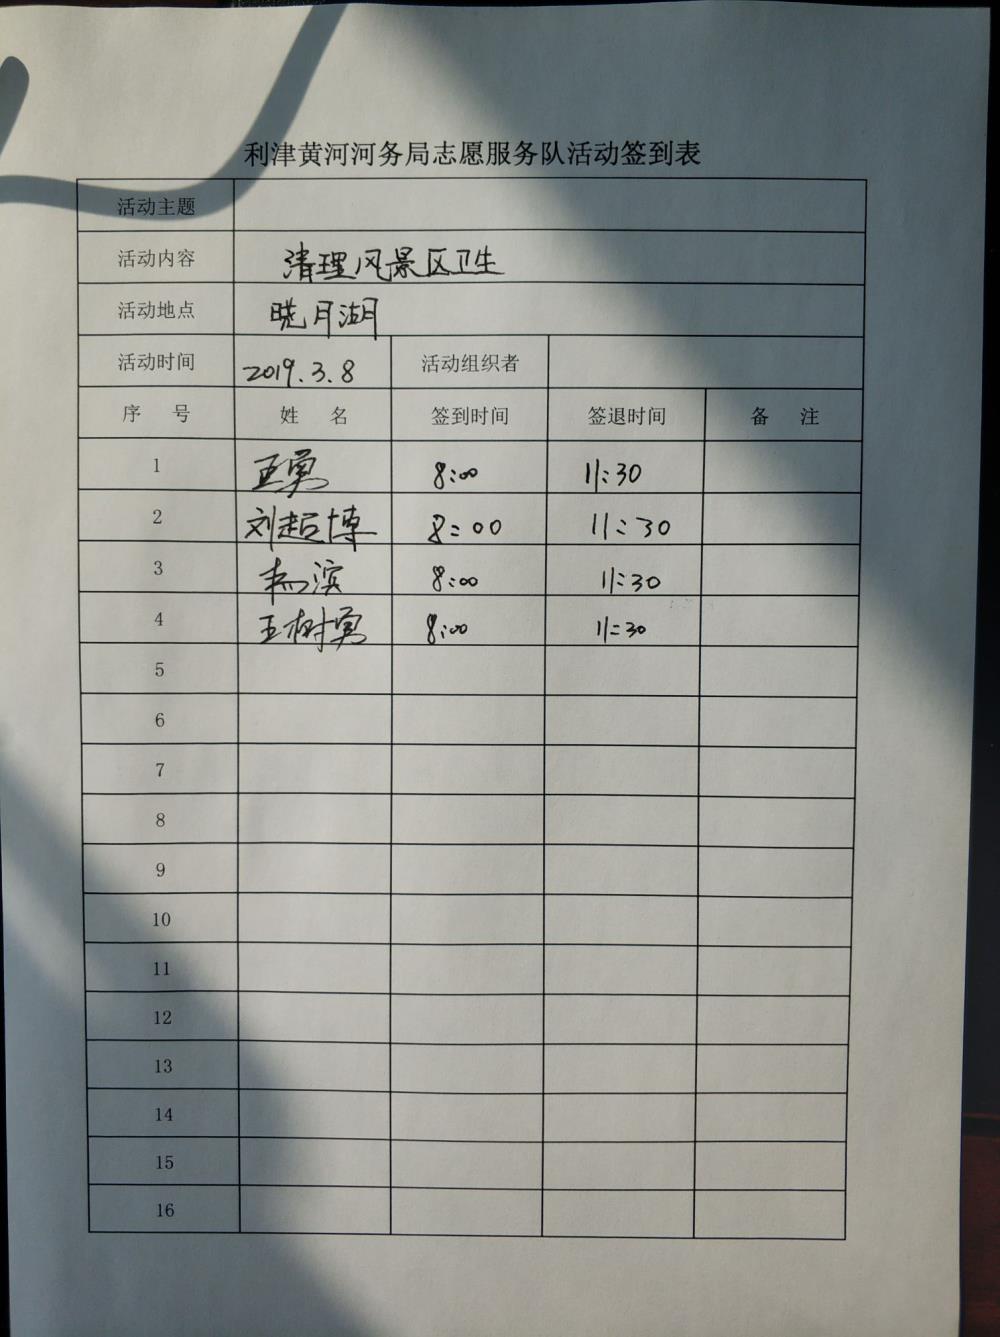 利津黄河河务局志愿服务队活动签到表
活动主题
活动内容 清理风景区卫生
活动地点 晓月湖
活动时间 2019.3.8 活动组织者
序 号 姓 名 签到时间 签退时间 备 注
1 王勇 8:00 11:30
2 刘超博 8:00 11:30
3 杨滨 8:00 11:30
4 王树勇 8:00 11:30
5
6
7
8
9
10
11
12
13
14
15
16